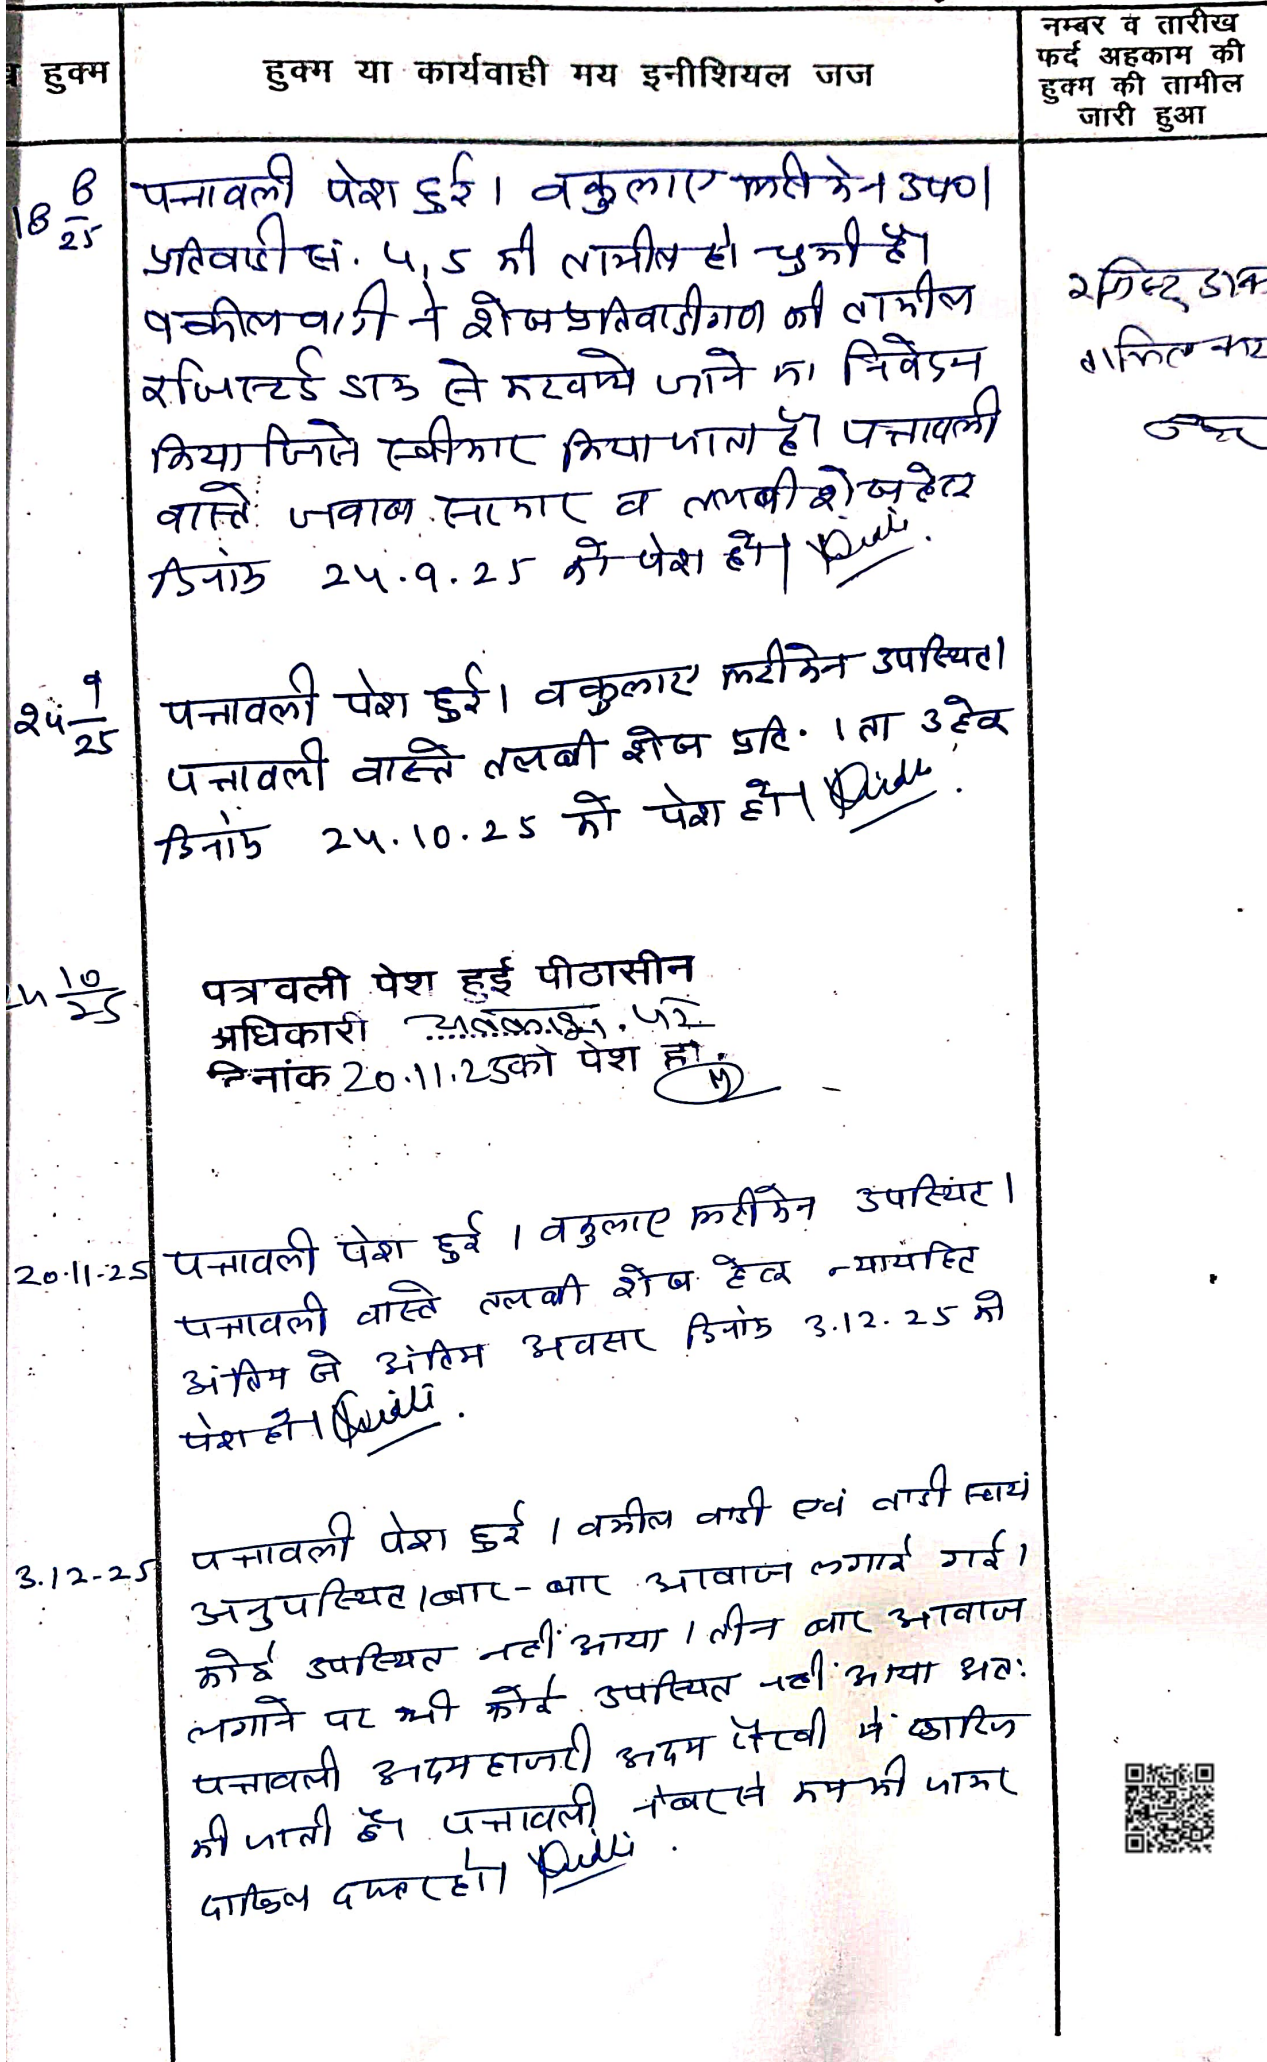 हुक्म
हुक्म या कार्यवाही मय इनीशियल जज
नम्बर व तारीख
फर्द अहकाम की
हुक्म की तामील
जारी हुआ
18 8/25
पत्रावली पेश हुई। वकुलाए फरीकेन उप0।
प्रतिवादी सं. 4,5 की तामील हो चुकी है।
वकील वादी ने शेष प्रतिवादीगण की तामील
रजिस्टर्ड डाक से करवाये जाने का निवेदन
किया जिसे स्वीकार किया जाता है। पत्रावली
वास्ते जवाब सरकार व तलबी शेष हेतु
दिनांक 24.9.25 को पेश हो।
रजिस्टर्ड डाक
24 9/25
पत्रावली पेश हुई। वकुलाए फरीकेन उपस्थित।
पत्रावली वास्ते तलबी शेष प्रति. 1 ता 3 हेतु
दिनांक 24.10.25 को पेश हो।
24 10/25
पत्रवली पेश हुई पीठासीन
अधिकारी अवकाश पर
दिनांक 20.11.25को पेश हो.
20.11-25
पत्रावली पेश हुई। वकुलाए फरीकेन उपस्थित।
पत्रावली वास्ते तलबी शेष हेतु न्यायहित
अंतिम से अंतिम अवसर दिनांक 3.12.25 को
पेश हो।
3.12-25
पत्रावली पेश हुई। वकील वादी एवं वादी स्वयं
अनुपस्थित। बार-बार आवाज लगाई गई।
कोई उपस्थित नहीं आया। तीन बार आवाज
लगाने पर भी कोई उपस्थित नहीं आया अतः
पत्रावली अदम हाजरी अदम पैरवी में खारिज
की जाती है। पत्रावली नंबर से कम की जाकर
दाखिल दफ्तर हो।